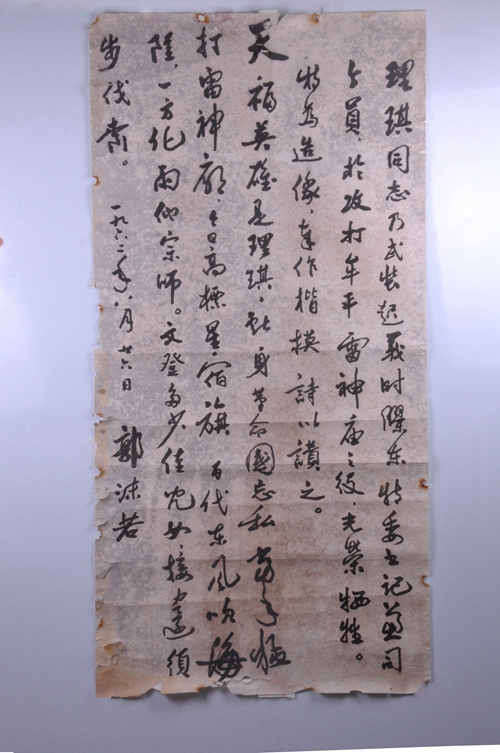 理琪同志乃武装起義时膠东特委书记兼司
令員,於攻打牟平雷神庙之役,光榮牺牲。
特为造像,奉作楷模 詩以讚之。
天福英雄是理琪,献身革命國忘私 当年猛
打雷神廟,今日高標星宿旗 百代东风吹海
陸,一方化雨仰宗师。文登多少佳兒女,接還須
步伐齊。一九六二年八月廿六日 郭沫若